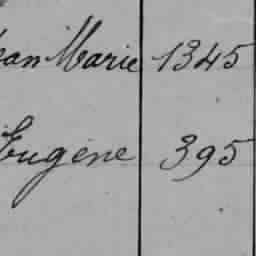 Jean Marie 1345
Eugène 395